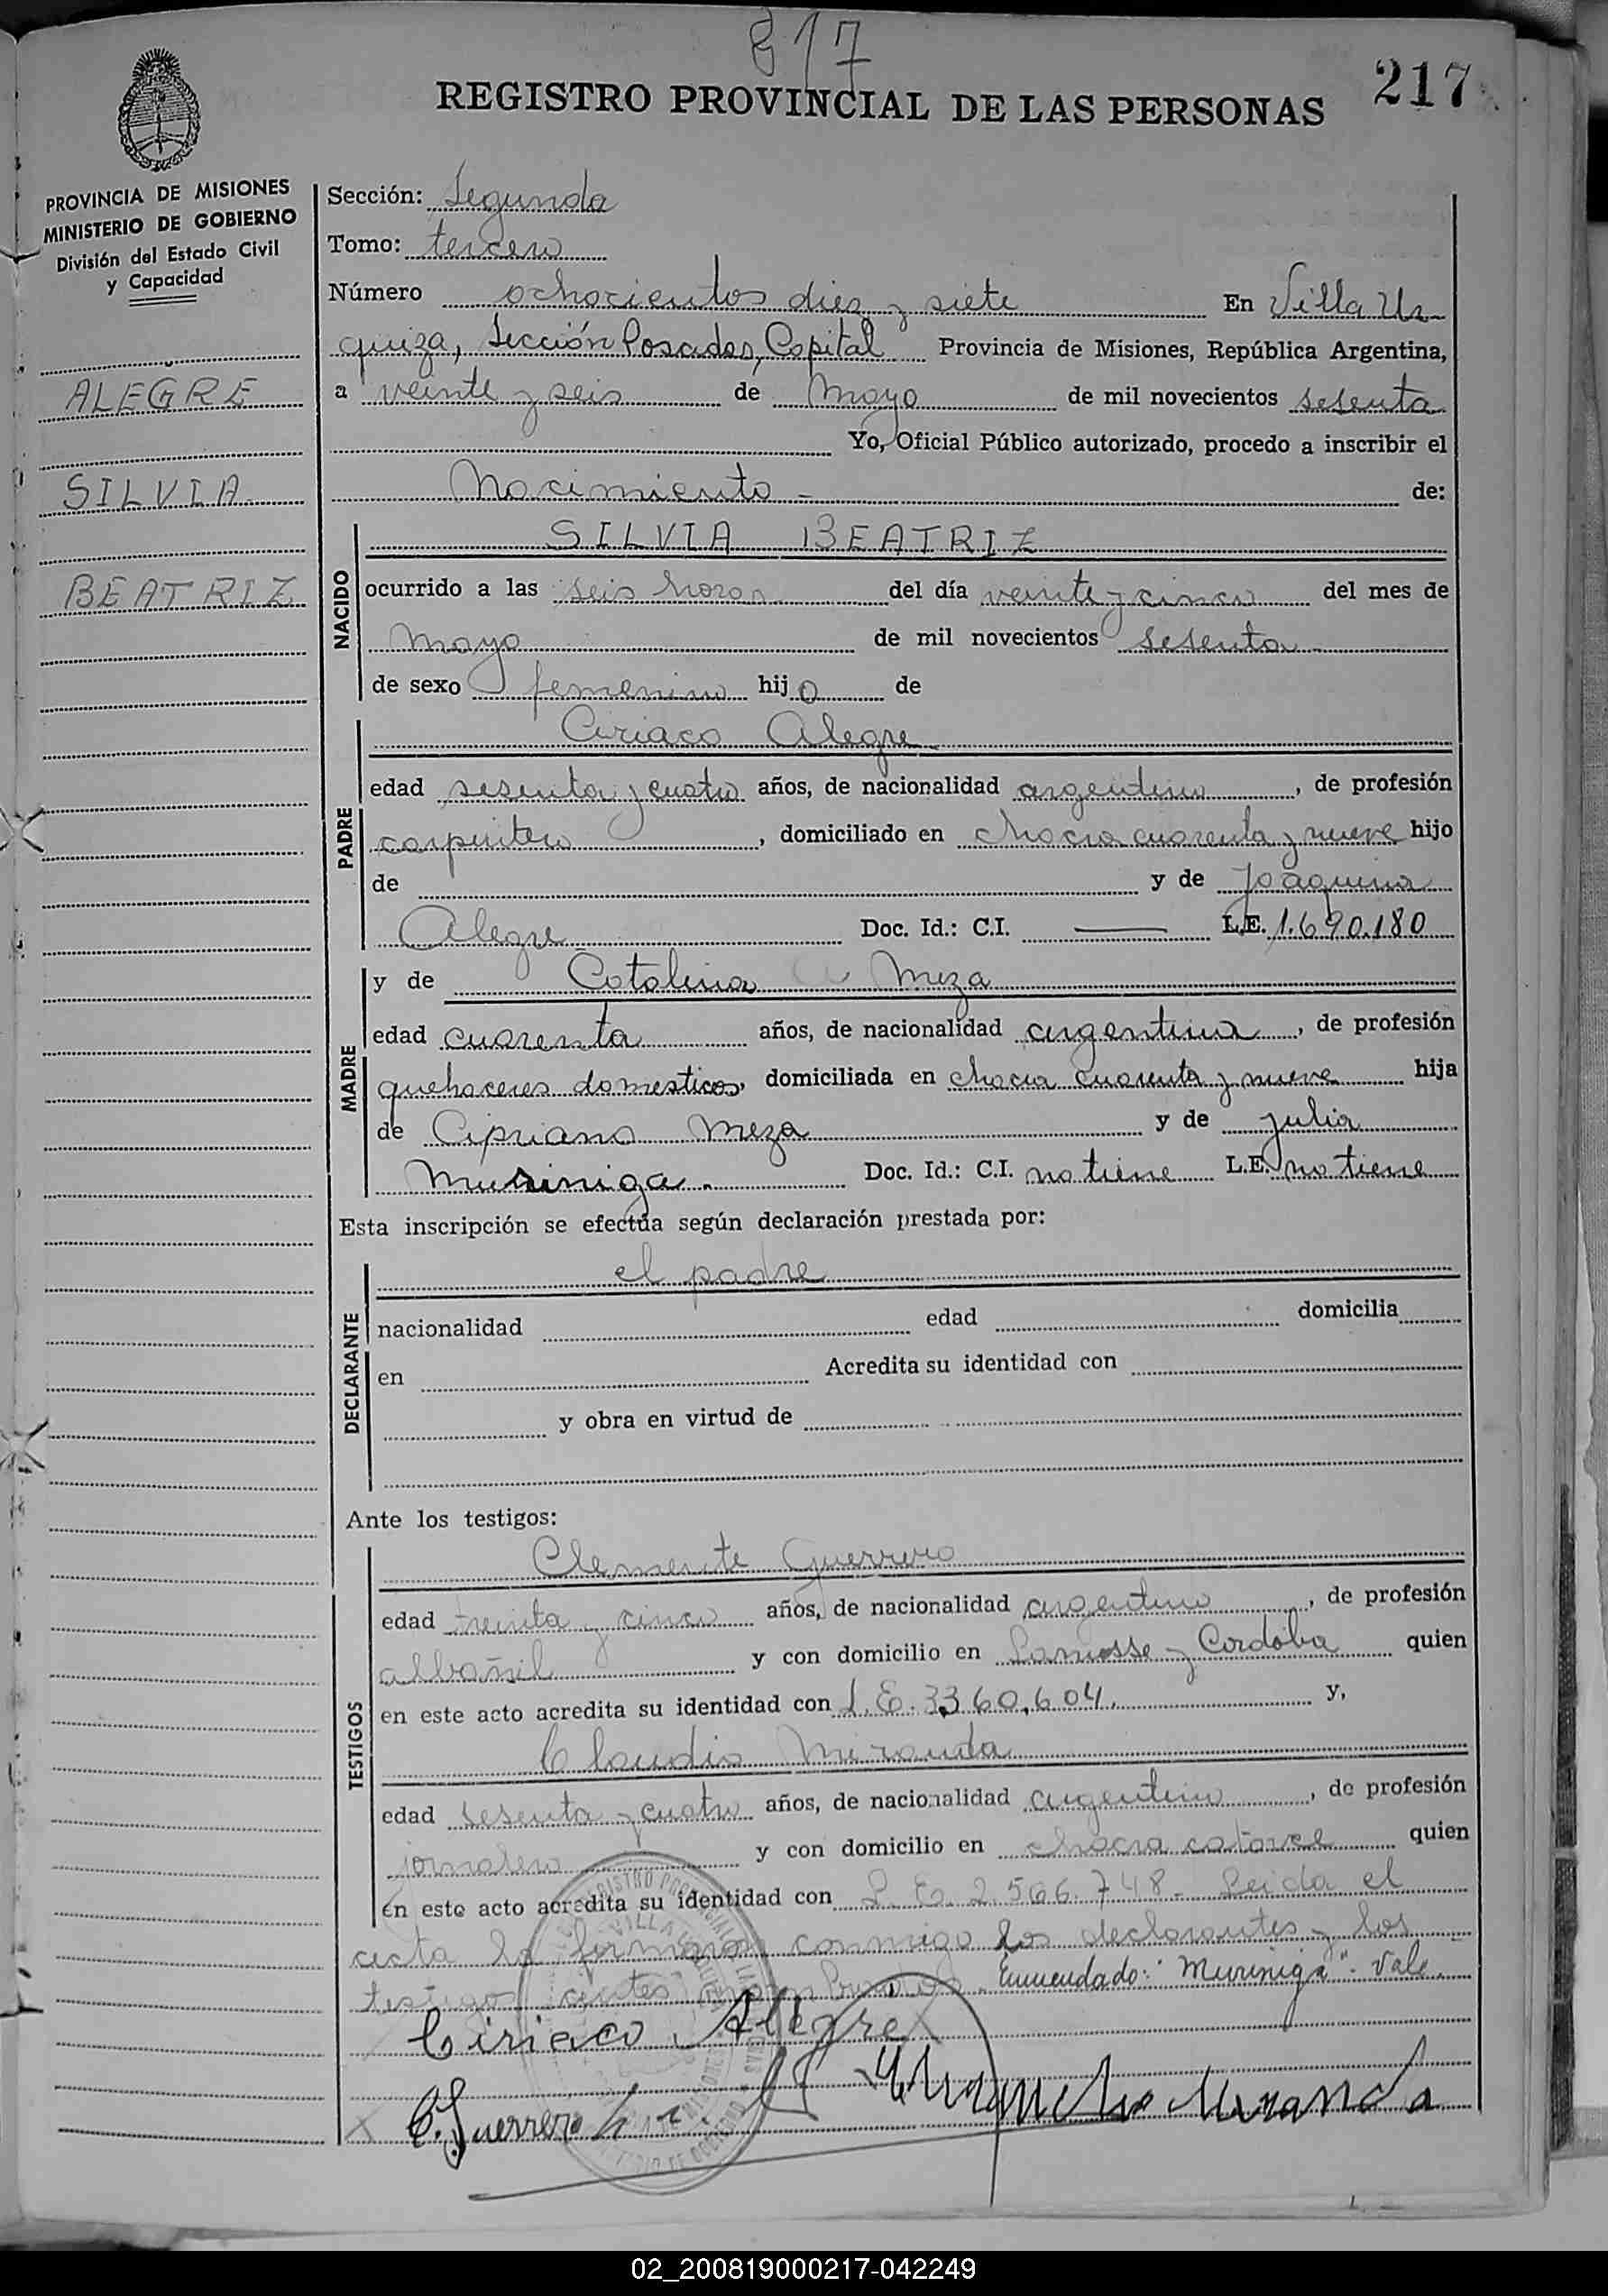 817
REGISTRO PROVINCIAL DE LAS PERSONAS 217
PROVINCIA DE MISIONES
MINISTERIO DE GOBIERNO
División del Estado Civil
y Capacidad
ALEGRE
SILVIA
BEATRIZ
Sección: Segunda
Tomo: tercero
Número ochocientos diez y siete En Villa Ur-
quiza, Sección Posadas, Capital Provincia de Misiones, República Argentina,
a veinte y seis de Mayo de mil novecientos sesenta
Yo, Oficial Público autorizado, procedo a inscribir el
Nacimiento - de:
NACIDO
SILVIA BEATRIZ
ocurrido a las seis horas del día veinte y cinco del mes de
Mayo de mil novecientos sesenta
de sexo femenino hijo de
PADRE
Ciriaco Alegre
edad sesenta y cuatro años, de nacionalidad argentino, de profesión
carpintero, domiciliado en chacra cuarenta y nueve hijo
de y de Joaquina
Alegre Doc. Id.: C.I. — L.E. 1.690.180
MADRE
y de Catalina Meza
edad cuarenta años, de nacionalidad argentina, de profesión
quehaceres domesticos, domiciliada en chacra cuarenta y nueve hija
de Cipriano Meza y de Julia
Muriniga. Doc. Id.: C.I. no tiene L.E. no tiene
Esta inscripción se efectúa según declaración prestada por:
DECLARANTE
el padre
nacionalidad edad domicilia
en Acredita su identidad con
y obra en virtud de
Ante los testigos:
TESTIGOS
Clemente Guerrero
edad treinta y cinco años, de nacionalidad argentino, de profesión
albañil y con domicilio en y Cordoba quien
en este acto acredita su identidad con L.E. 3.360.604. y,
Claudio Miranda
edad sesenta y cuatro años, de nacionalidad argentino, de profesión
jornalero y con domicilio en chacra catorce quien
en este acto acredita su identidad con L.E. 2.566.748- Leida el
acta la firmaron conmigo los declarantes y los
testigos antes nombrados. Enmendado: "Muriniga". Vale.
Ciriaco Alegre
C. Guerrero Miranda
02_200819000217-042249